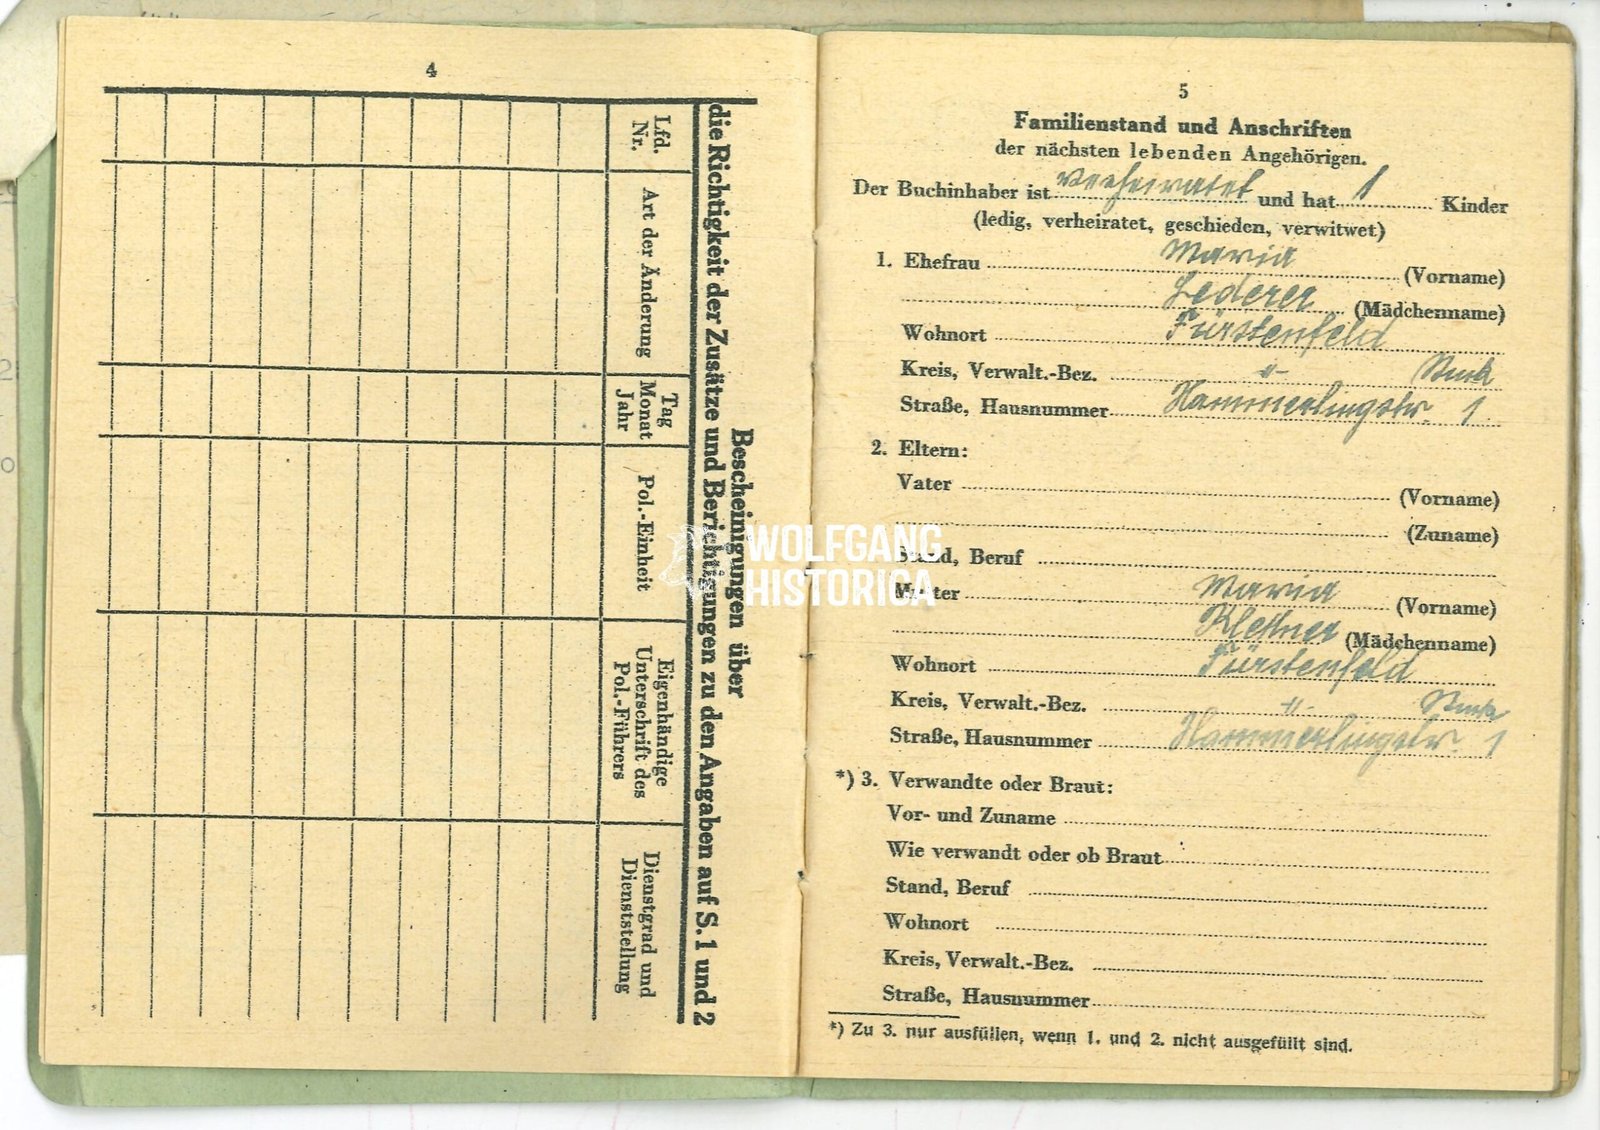 4
Bescheinigungen über
die Richtigkeit der Zusätze und Berichtigungen zu den Angaben auf S. 1 und 2
Lfd. Nr.
Art der Änderung
Tag Monat Jahr
Pol.-Einheit
Eigenhändige Unterschrift des Pol.-Führers
Dienstgrad und Dienststellung
5
Familienstand und Anschriften
der nächsten lebenden Angehörigen.
Der Buchinhaber ist verheiratet und hat 1 Kinder
(ledig, verheiratet, geschieden, verwitwet)
1. Ehefrau Maria (Vorname)
Lederer (Mädchenname)
Wohnort Fürstenfeld
Kreis, Verwalt.-Bez. -"-
Straße, Hausnummer Hammerlingstr. 1
2. Eltern:
Vater (Vorname)
(Zuname)
Stand, Beruf
Mutter Maria (Vorname)
(Mädchenname)
Wohnort Fürstenfeld
Kreis, Verwalt.-Bez. -"-
Straße, Hausnummer Hammerlingstr. 1
*) 3. Verwandte oder Braut:
Vor- und Zuname
Wie verwandt oder ob Braut
Stand, Beruf
Wohnort
Kreis, Verwalt.-Bez.
Straße, Hausnummer
*) Zu 3. nur ausfüllen, wenn 1. und 2. nicht ausgefüllt sind.
WOLFGANG
HISTORICA